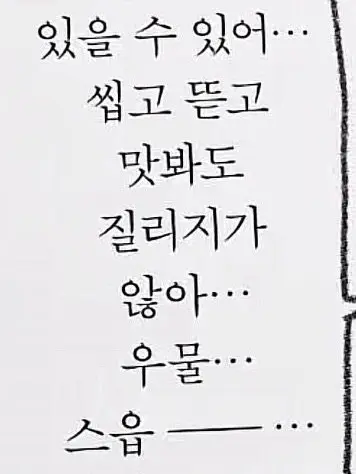 있을 수 있어…
씹고 뜯고
맛봐도
질리지가
않아…
우물…
스읍 ── …